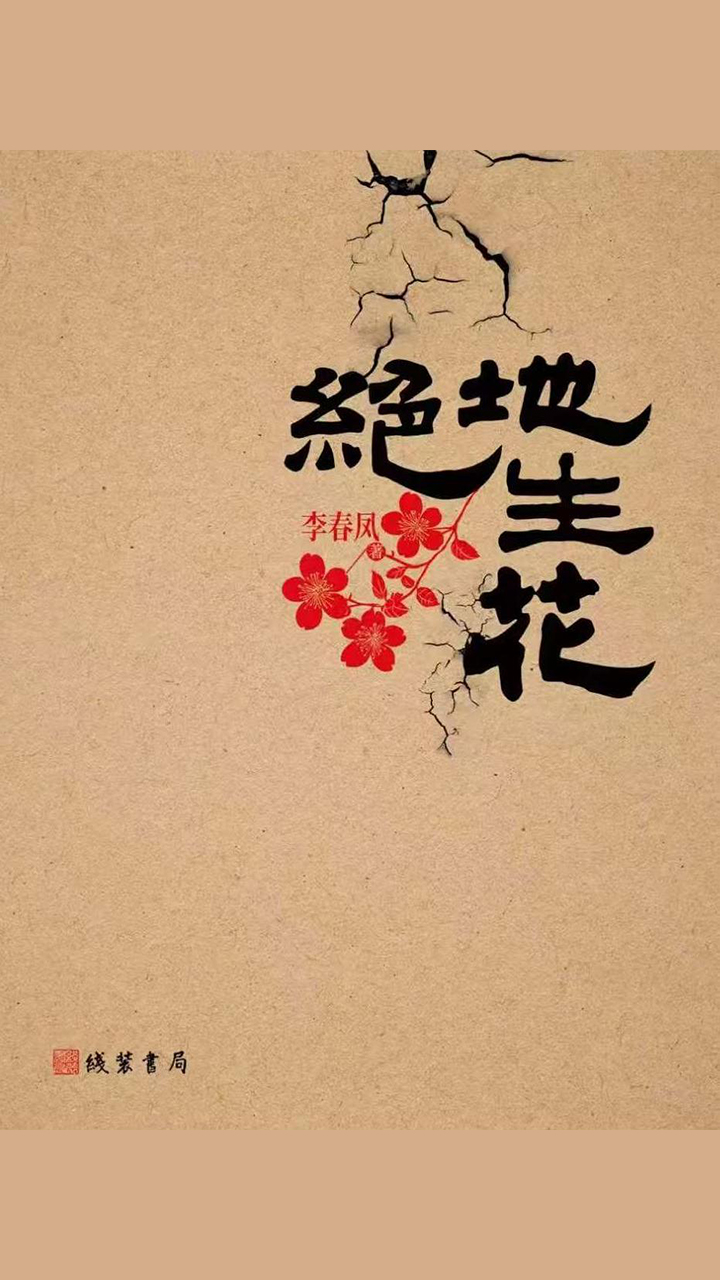 絕地
生
花
李春凤 著
线装书局